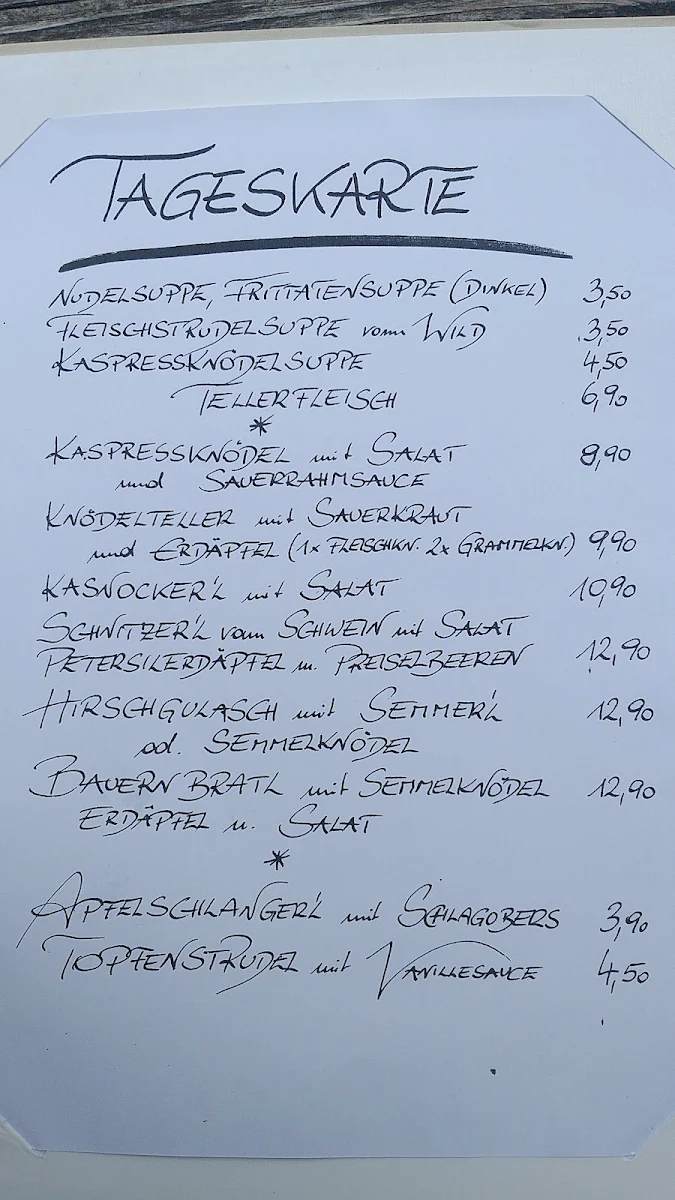 TAGESKARTE
NUDELSUPPE, FRITTATENSUPPE (DINKEL) 3,50
FLEISCHSTRUDELSUPPE vom WILD 3,50
KASPRESSKNÖDELSUPPE 4,50
TELLERFLEISCH 6,90
*
KASPRESSKNÖDEL mit SALAT 8,90
und SAUERRAHMSAUCE
KNÖDELTELLER mit SAUERKRAUT
und ERDÄPFEL (1x FLEISCHKN. 2x GRAMMELKN.) 9,90
KASNOCKER'L mit SALAT 10,90
SCHNITZER'L vom SCHWEIN mit SALAT
PETERSILERDÄPFEL u. PREISELBEEREN 12,90
HIRSCHGULASCH mit SEMMER'L 12,90
od. SEMMELKNÖDEL
BAUERNBRATL mit SEMMELKNÖDEL 12,90
ERDÄPFEL u. SALAT
*
APFELSCHLANGER'L mit SCHLAGOBERS 3,90
TOPFENSTRUDEL mit VANILLESAUCE 4,50